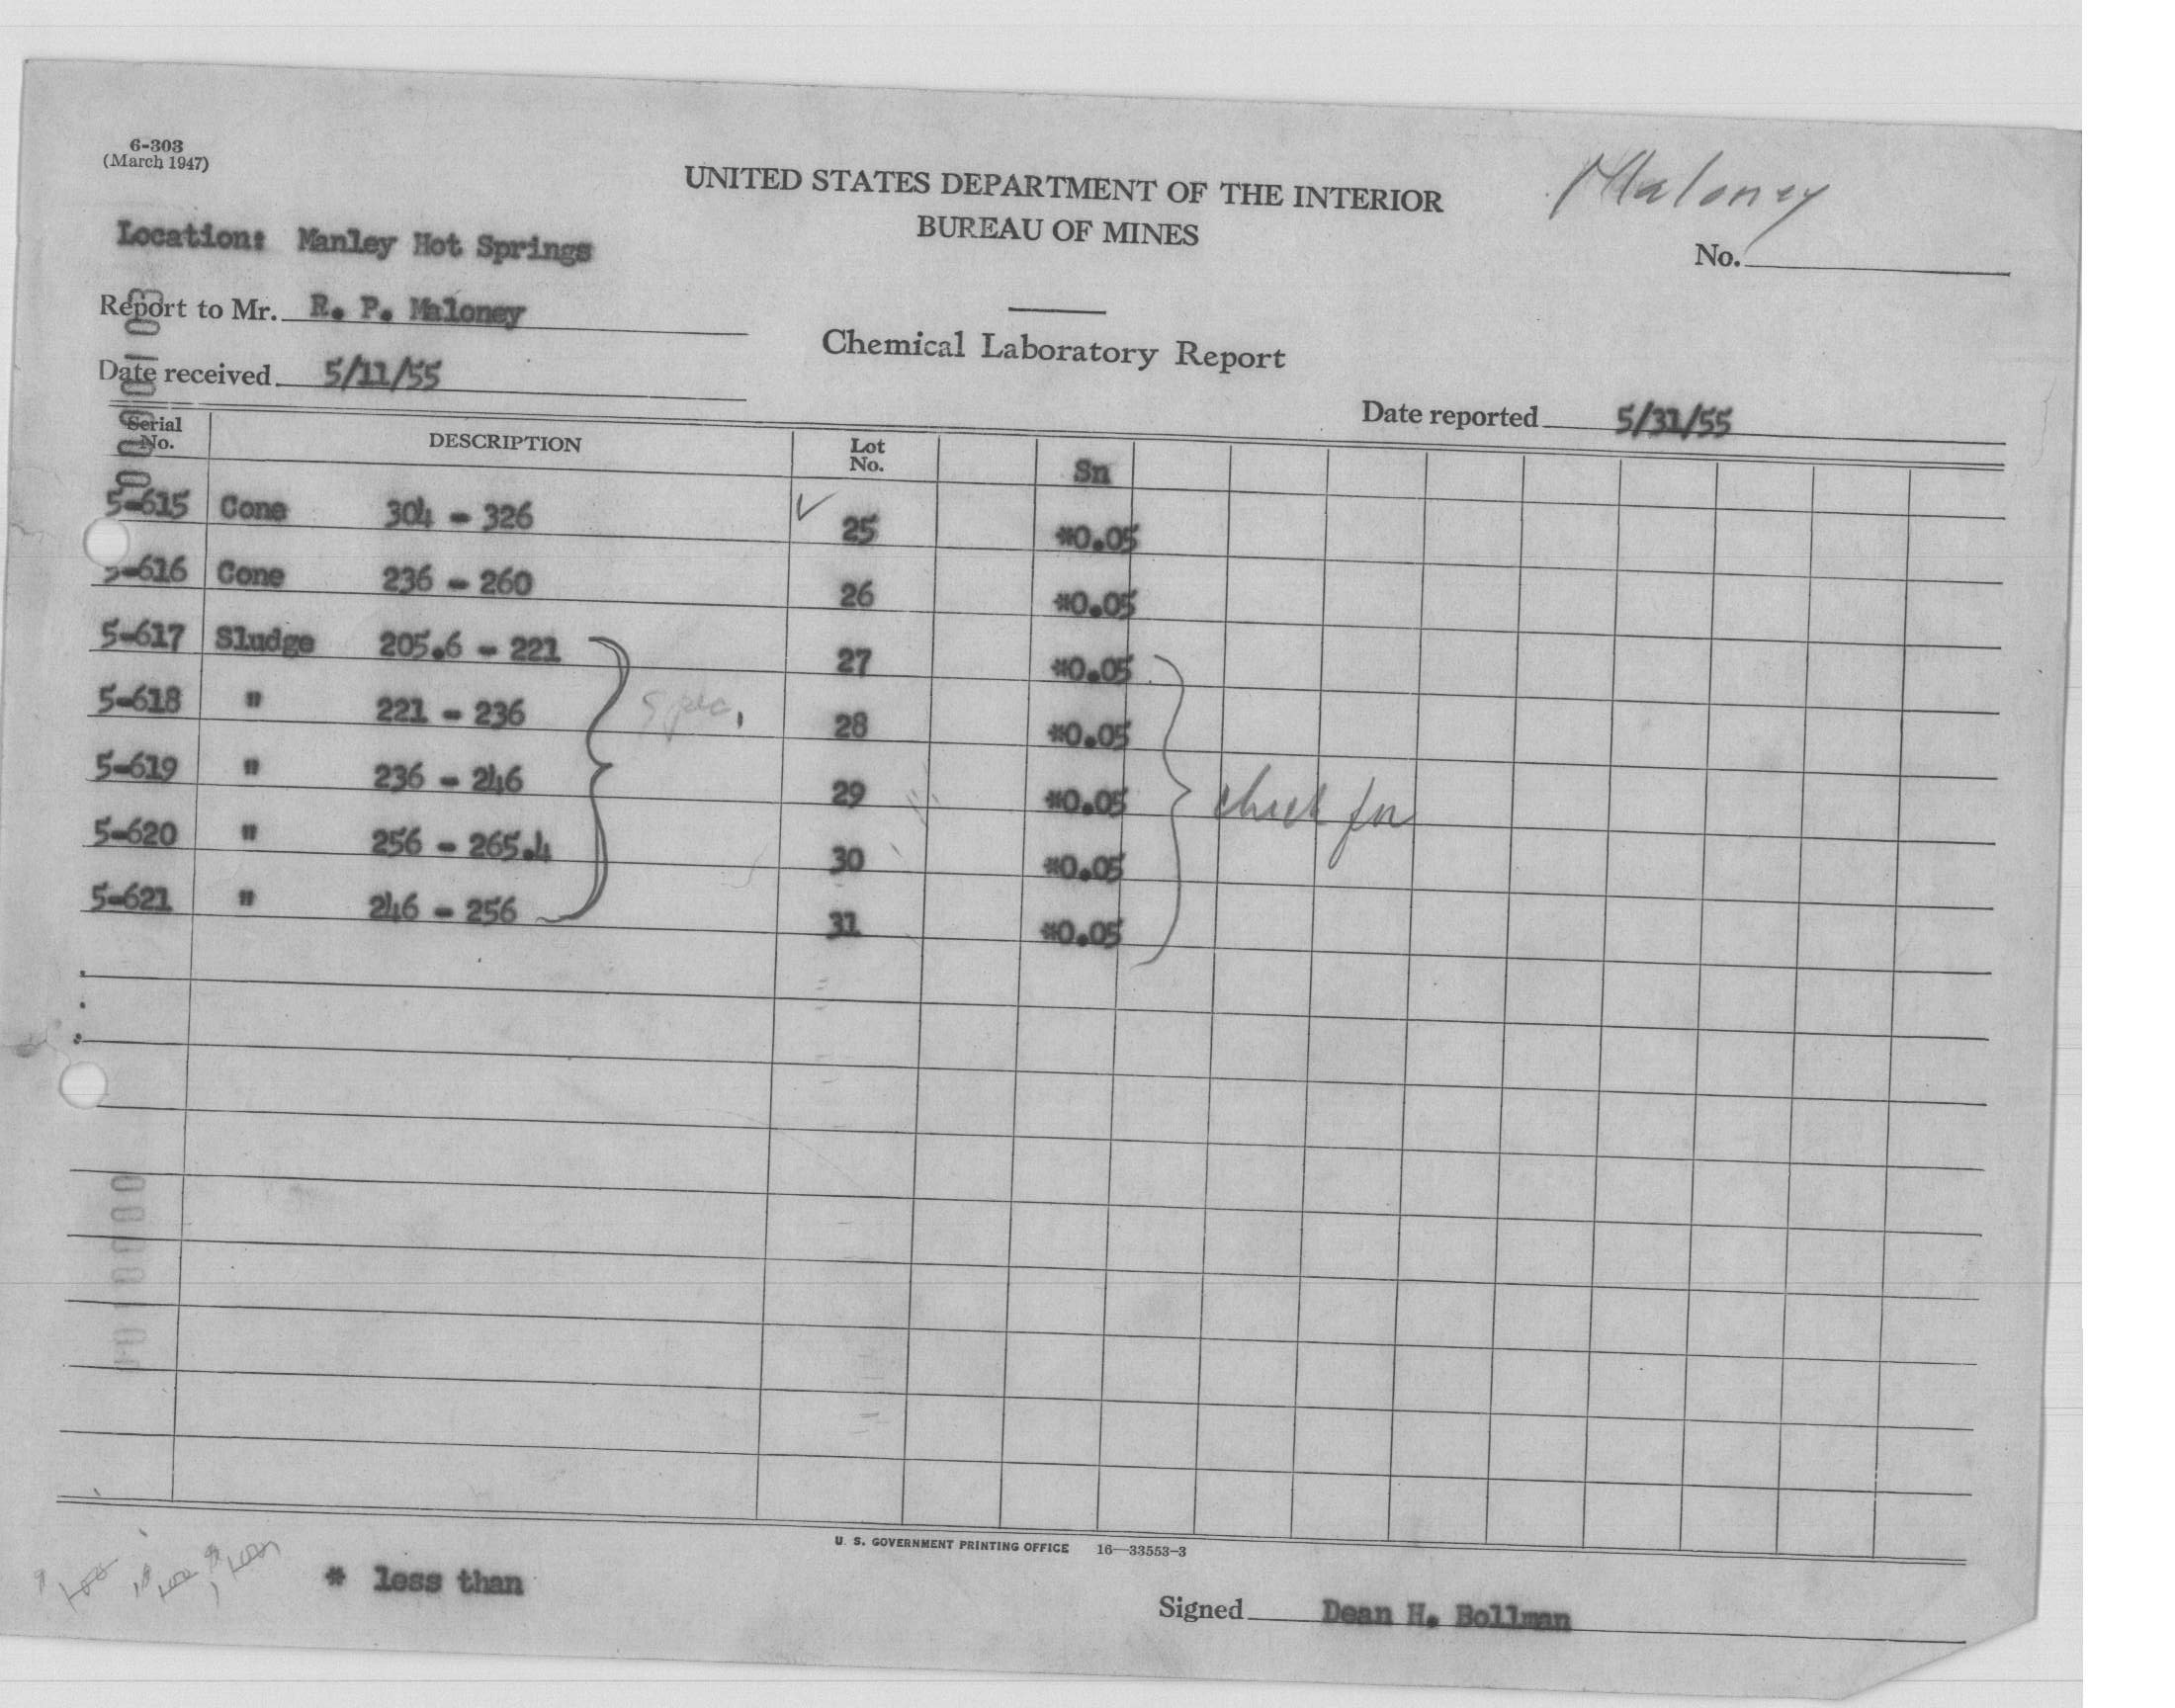 6-303
(March 1947)
UNITED STATES DEPARTMENT OF THE INTERIOR
BUREAU OF MINES
Maloney
No.
Location: Manley Hot Springs
Report to Mr. R. P. Maloney
Chemical Laboratory Report
Date received 5/11/55
Date reported 5/31/55
Serial No. DESCRIPTION Lot No. Sn
5-615 Cone 304 - 326 ✓ 25 *0.05
5-616 Cone 236 - 260 26 *0.05
5-617 Sludge 205.6 - 221 27 *0.05
5-618 " 221 - 236 spec. 28 *0.05
5-619 " 236 - 246 29 *0.05 check for
5-620 " 256 - 265.4 30 *0.05
5-621 " 246 - 256 31 *0.05
U. S. GOVERNMENT PRINTING OFFICE 16—33553-3
* less than
Signed Dean H. Bollman